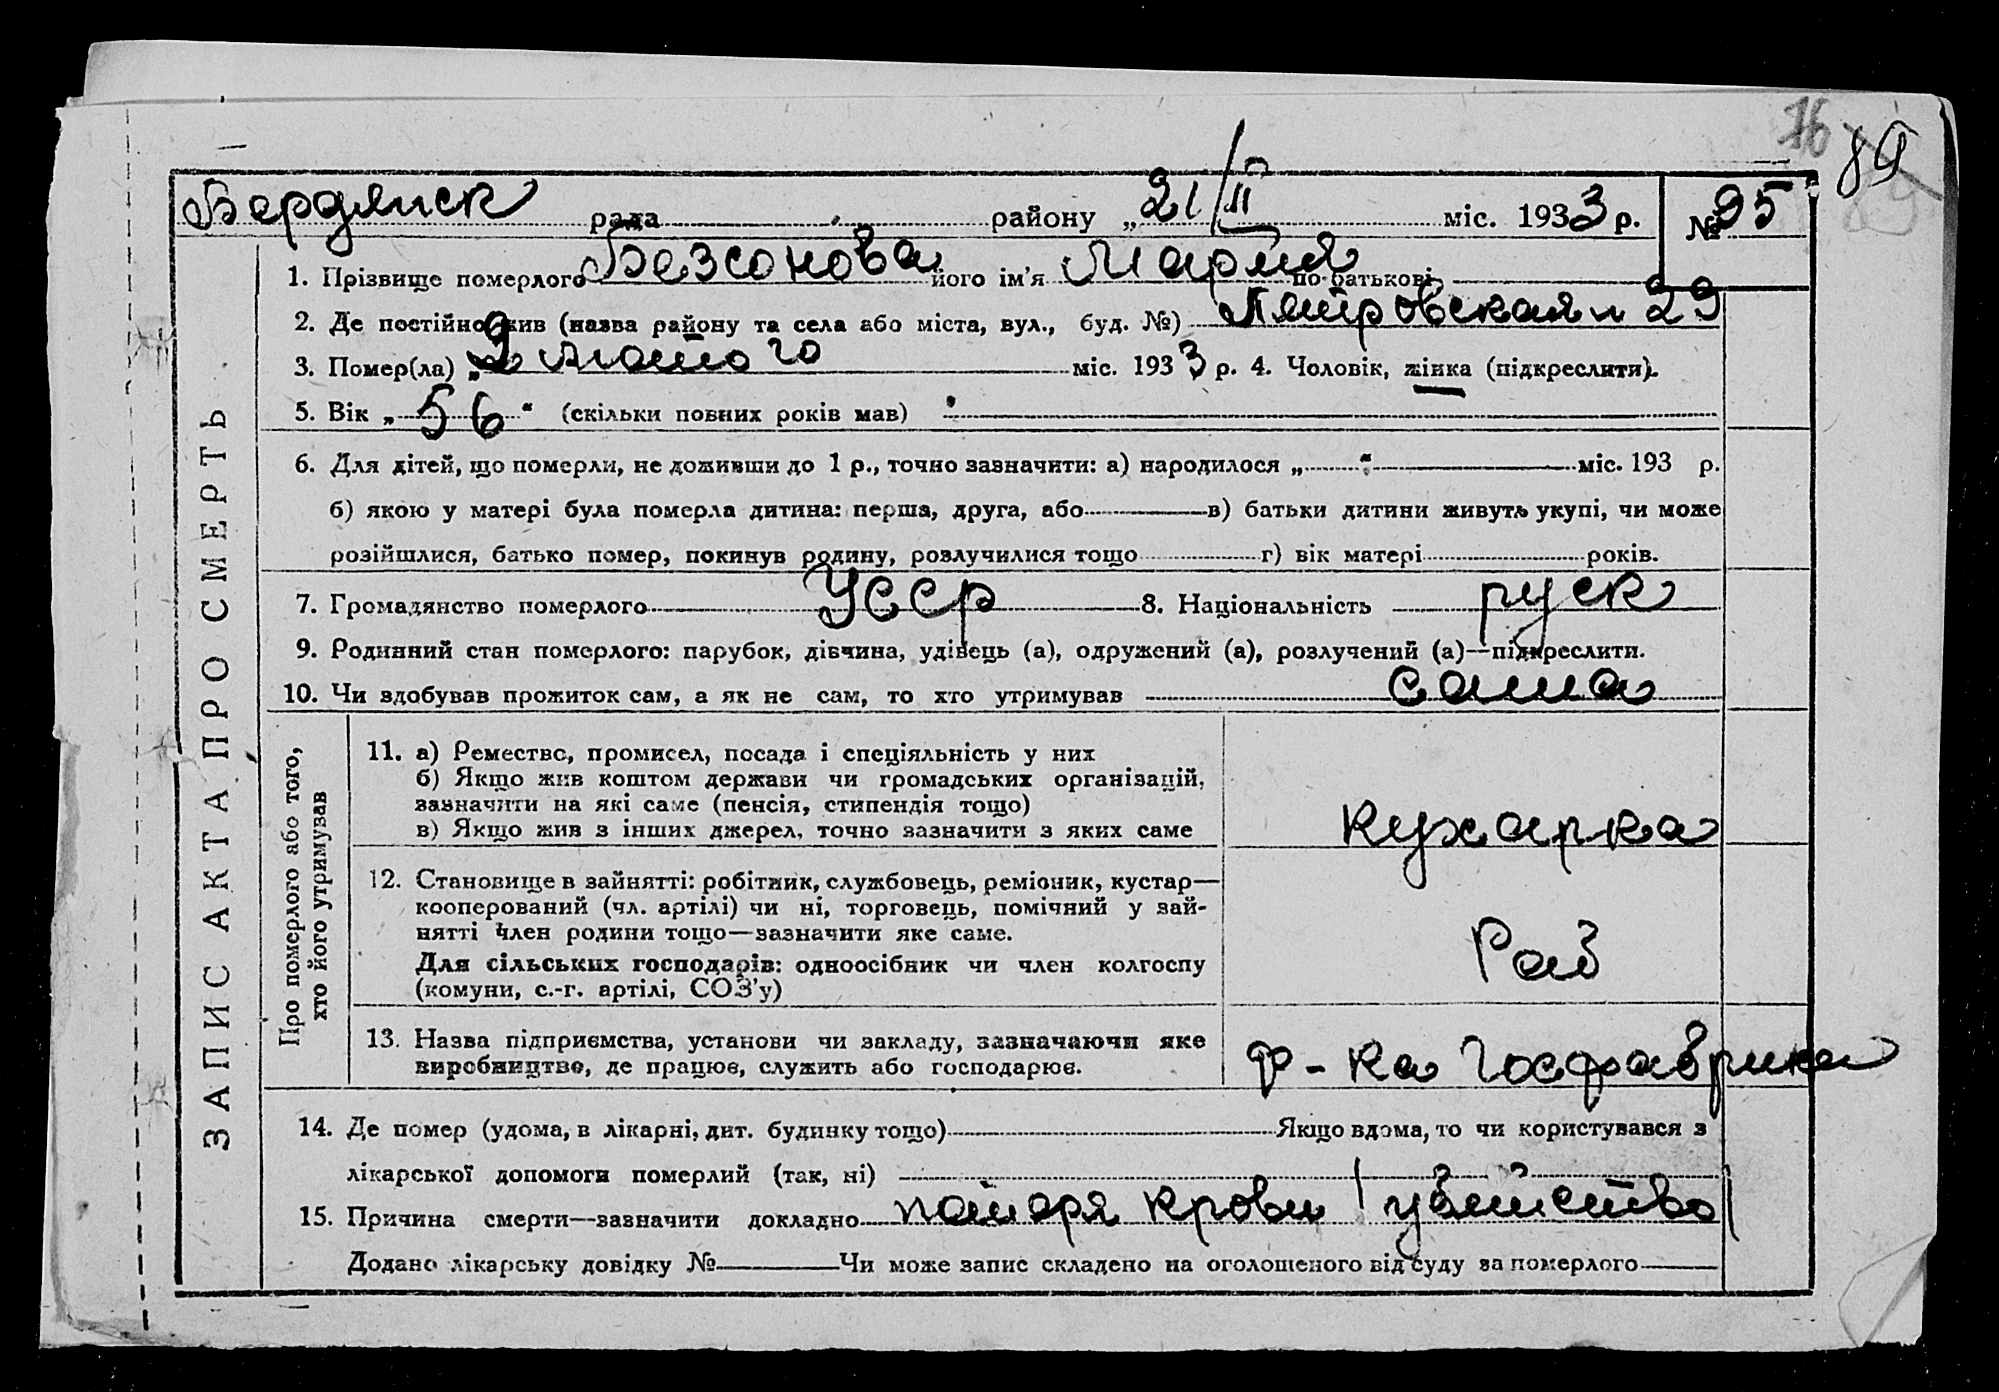 76 89
Бердянск рада району „ 21/II міс. 1933 р. № 95
1. Прізвище померлого Безсонова його ім’я Мария по-батькові
2. Де постійно жив (назва району та села або міста, вул., буд. №) 29
3. Помер(ла) „ 2 лютого міс. 1933 р. 4. Чоловік, жінка (підкреслити).
5. Вік „ 56 “ (скільки повних років мав)
6. Для дітей, що померли, не доживши до 1 р., точно зазначити: а) народилося „ “ міс. 193 р.
б) якою у матері була померла дитина: перша, друга, або в) батьки дитини живуть укупі, чи може
розійшлися, батько помер, покинув родину, розлучилися тощо г) вік матері років.
7. Громадянство померлого УССР 8. Національність руск
9. Родинний стан померлого: парубок, дівчина, удівець (а), одружений (а), розлучений (а)—підкреслити.
10. Чи здобував прожиток сам, а як не сам, то хто утримував сама
ЗАПИС АКТА ПРО СМЕРТЬ
Про померлого або того,
хто його утримував
11. а) Ремество, промисел, посада і спеціяльність у них
б) Якщо жив коштом держави чи громадських організацій,
зазначити на які саме (пенсія, стипендія тощо)
в) Якщо жив з інших джерел, точно зазначити з яких саме
кухарка
12. Становище в зайнятті: робітник, службовець, реміоник, кустар—
кооперований (чл. артілі) чи ні, торговець, помічний у зай-
нятті член родини тощо—зазначити яке саме.
Для сільських господарів: одноосібник чи член колгоспу
(комуни, с.-г. артілі, СОЗ’у)
Раб
13. Назва підприємства, установи чи закладу, зазначаючи яке
виробництво, де працює, служить або господарює.
Ф-ка Госфабрика
14. Де помер (удома, в лікарні, дит. будинку тощо) Якщо вдома, то чи користувався з
лікарської допомоги померлий (так, ні)
15. Причина смерти—зазначити докладно крови (убийство)
Додано лікарську довідку № Чи може запис складено на оголошеного від суду за померлого